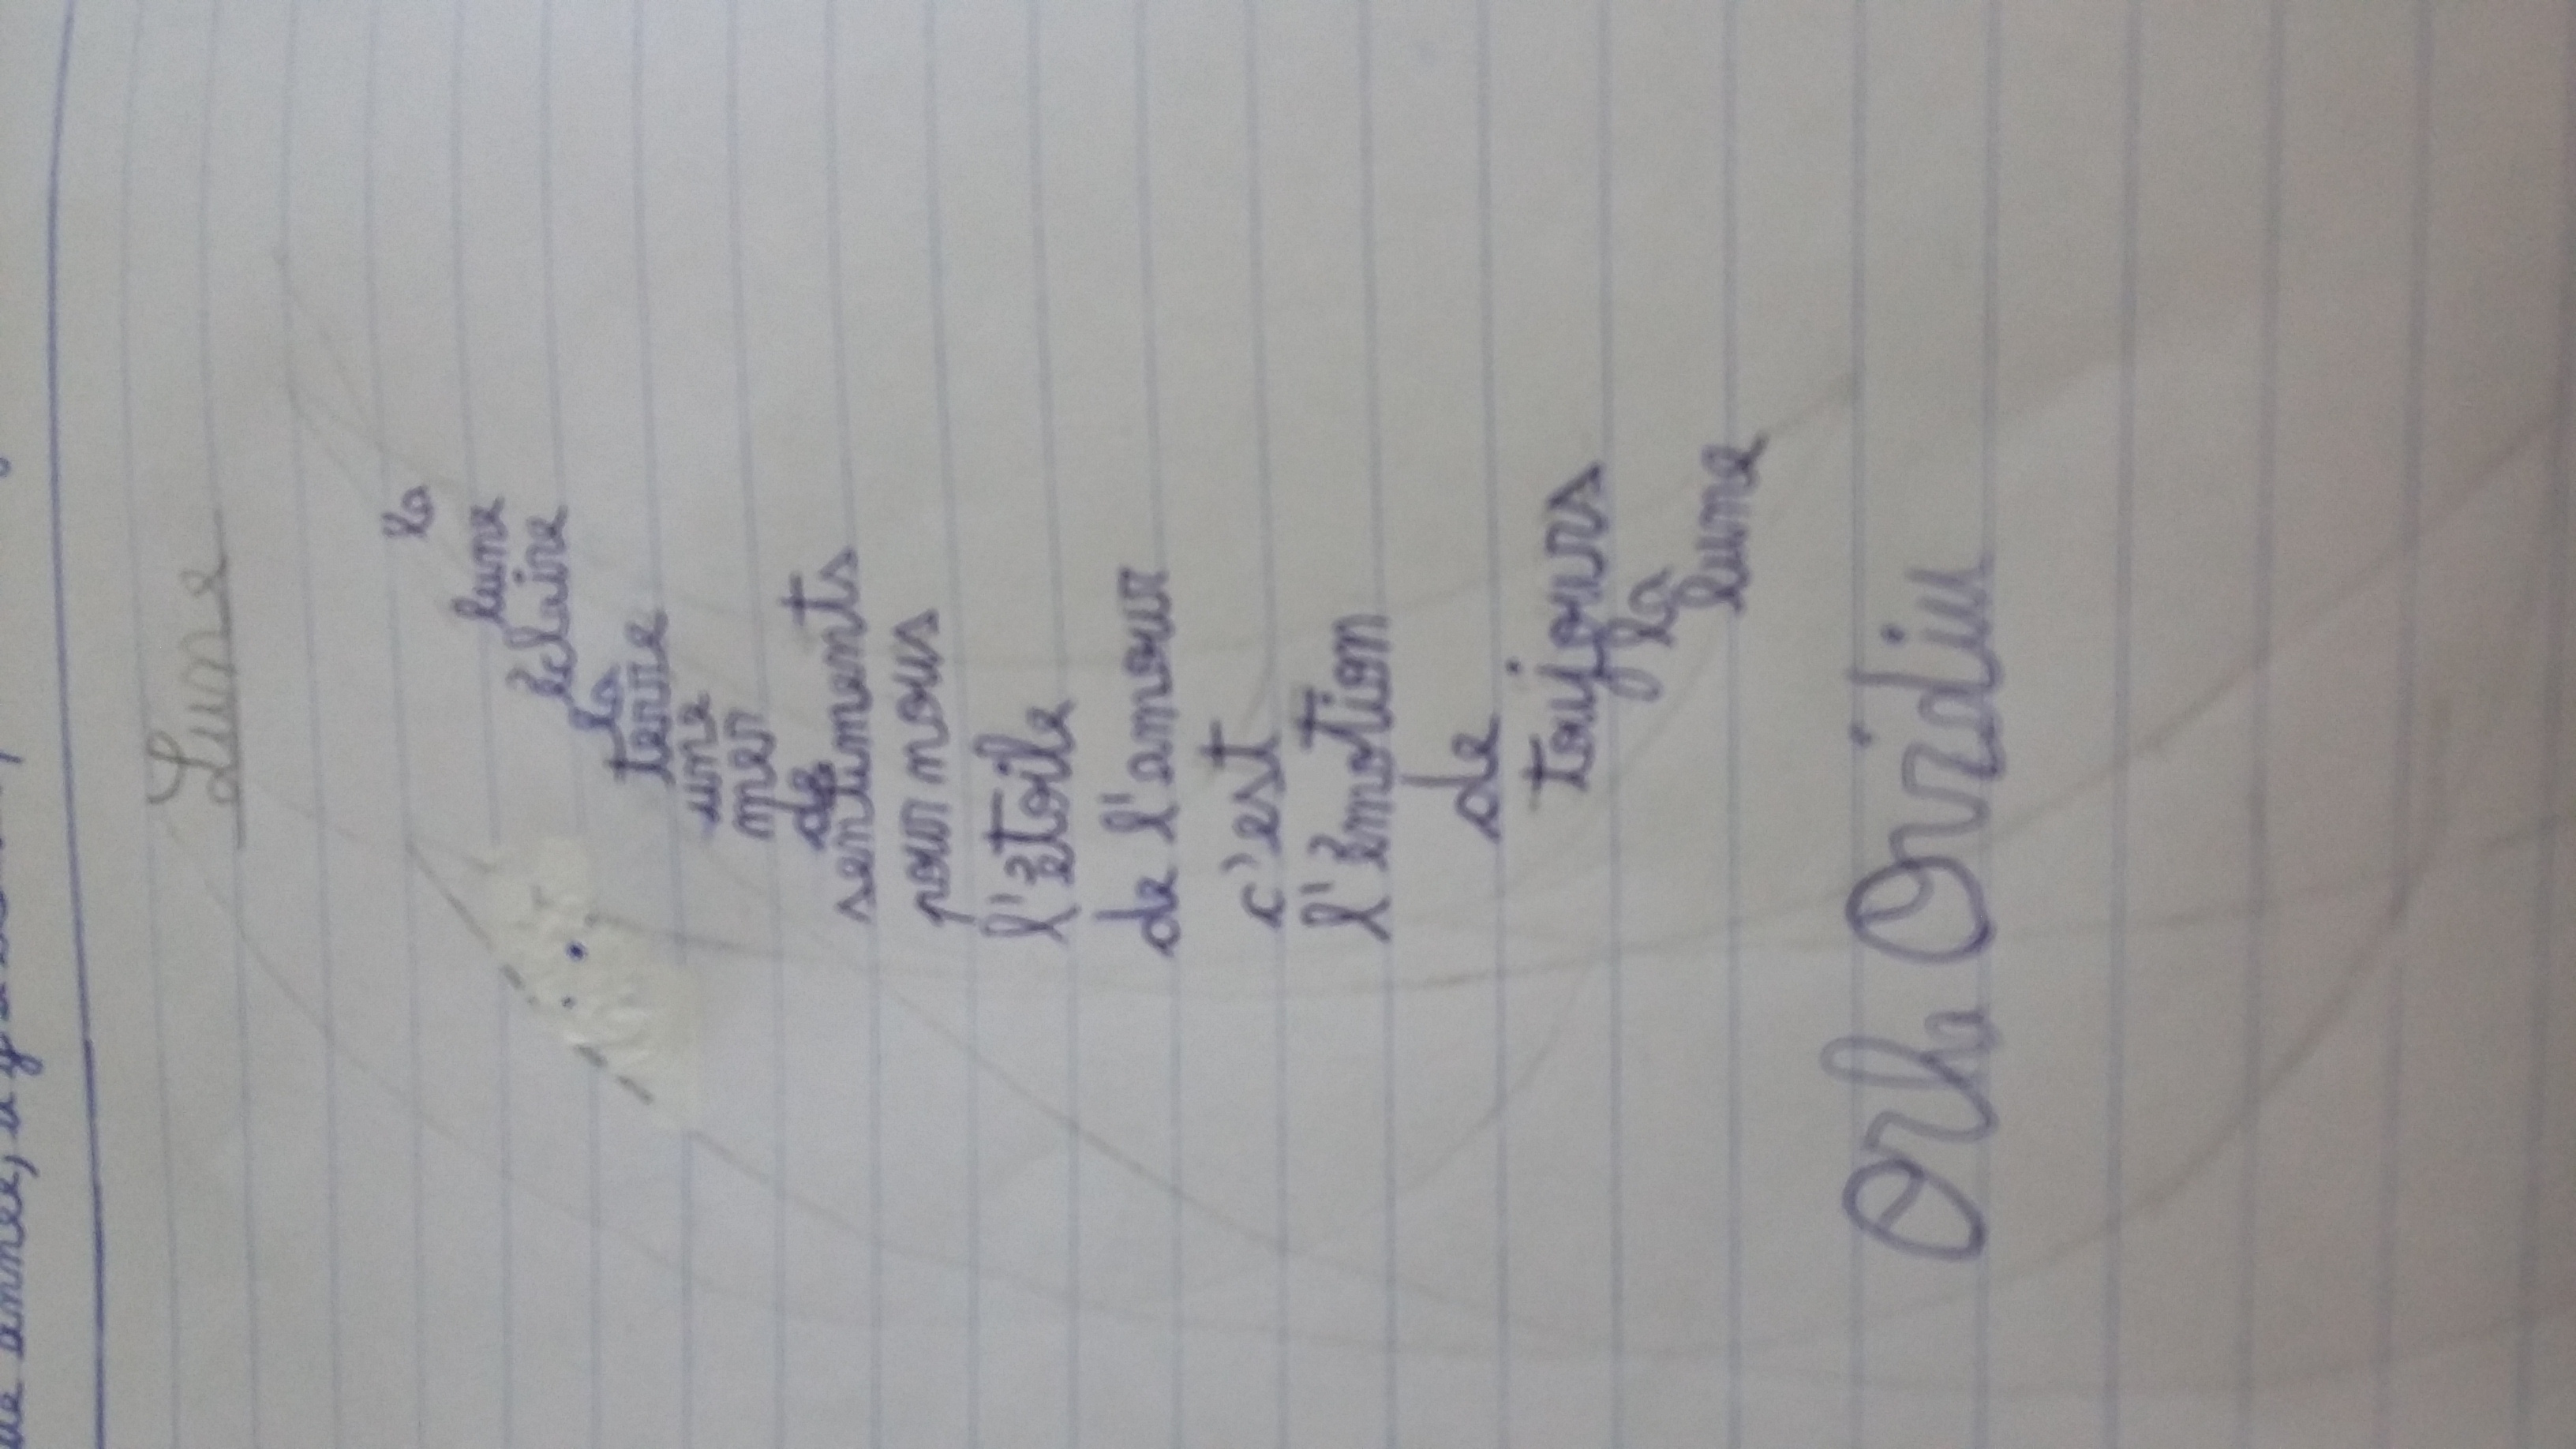 Lune
la
lune
éclaire
la
terre
une
mer
de
sentiments
pour nous
l'étoile
de l'amour
c'est
l'émotion
de
toujours
la
lune
Orh Ovidiu